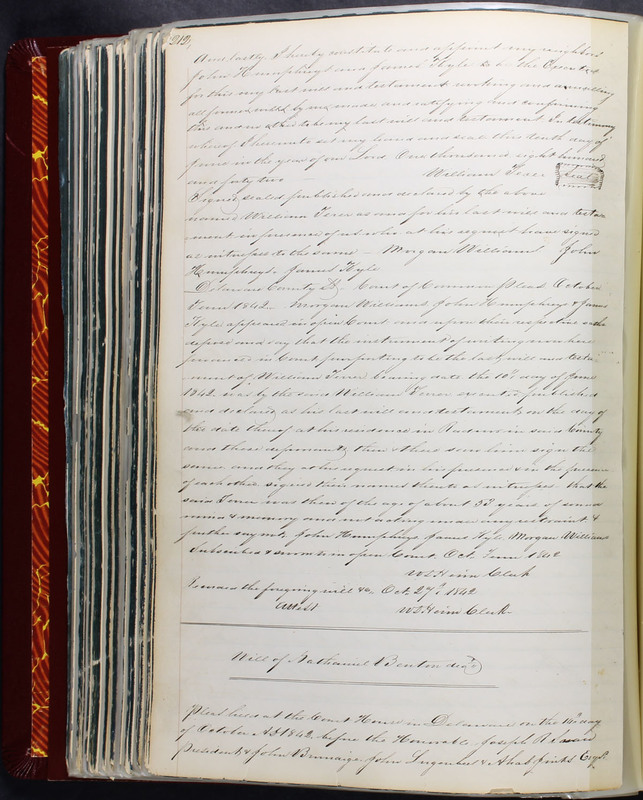 212
And lastly I hereby constitute and appoint my neighbors
John Humphreys and James Kyle to be the Executors
for this my last will and testament revoking and annulling
all former wills by me made and ratifying and confirming
this and no other to be my last will and testament In testimony
whereof I hereunto set my hand and seal this tenth day of
June in the year of our Lord One thousand eight hundred
and forty two William Seal
Signed sealed published and declared by the above
named William as and for his last will and testa
ment in presence of us who at his request have signed
as witnesses to the same – Morgan Williams John
Humphreys. James Kyle
Delaware County Ss Court of Common Pleas October
Term 1842. Morgan Williams John Humphreys & James
Kyle appeared in open Court and upon their respective oaths
depose and say that the instrument of writing now here
presented in Court purporting to be the last will and testa
ment of William bearing date the 10th day of June
1842 was by the said William executed published
and declared as his last will and testament on the day of
the date thereof at his residence in Radnor in said County
and these deponents then & there saw him sign the
same and they at his request in his presence & in the presence
of each other signed their names thereto as witnesses that the
said was then of the age of about 53 years of sound
mind & memory and not acting under any restraint &
further say not John Humphreys James Kyle Morgan Williams
Subscribed & sworn to in open Court, Oct. Term 1842
W D Heim Clerk
Recorded the foregoing will &c. Oct. 27th 1842
Attest W D Heim Clerk
Will of Nathaniel Benton decd
Pleas held at the Court House in Delaware on the 14th day
of October AD 1842 before the Honorable Joseph R Swan
President & John Brunaige John Lugenbeel & Ahab Jinks Esqrs